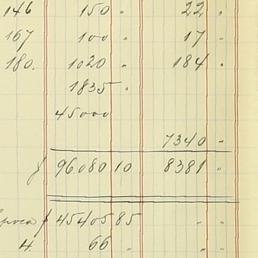 146 150 „ 22 „
167 100 „ 17 „
180. 1020 „ 184 „
1835 „
45000
7340 „
f 96080 10 8381 „
f 45405 85 „ „
4. 66 „ „ „